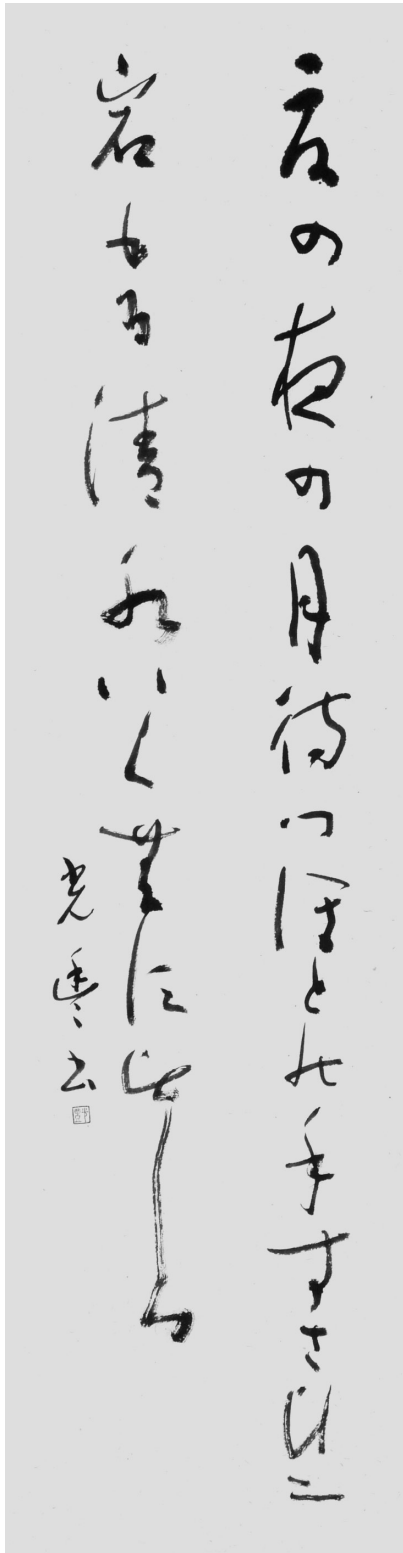 夏の夜の月待つほとの手すさひ二
岩もる清水いく無すひしつ
光 書